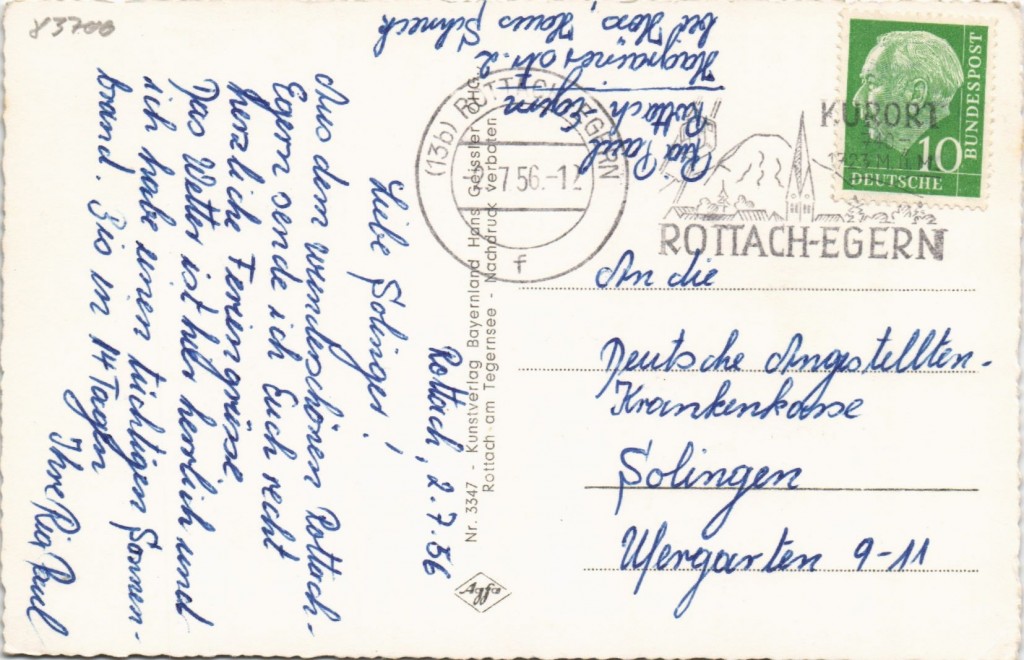 83700
Rottach, 2.7.56
Liebe Solinger!
Aus dem wunderschönen Rottach-
Egern sende ich Euch recht
herzliche Feriengrüsse
Das Wetter ist hier herrlich und
ich habe einen tüchtigen Sonnen-
brand. Bis in 14 Tagen
Ihre Ria Paul
Ria Paul
Rottach Egern
str. 2
bei Haus Schneck
Nr. 3347 - Kunstverlag Bayernland Hans Geissler OHG
Rottach-am Tegernsee - Nachdruck verboten
Agfa
(13b) ROTTACH-EGERN
7 56.-12
f
KURORT
ROTTACH-EGERN
10
DEUTSCHE
BUNDESPOST
An die
Deutsche Angestellten-
Krankenkasse
Solingen
Ufergarten 9-11